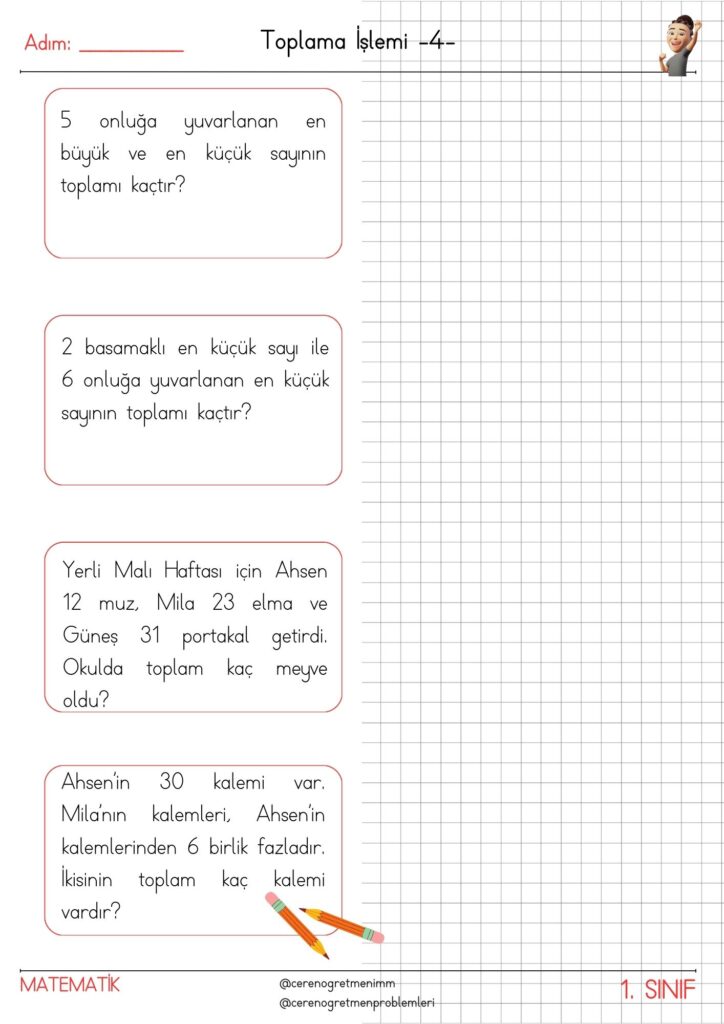 Adım: __________
Toplama İşlemi -4-
5 onluğa yuvarlanan en
büyük ve en küçük sayının
toplamı kaçtır?
2 basamaklı en küçük sayı ile
6 onluğa yuvarlanan en küçük
sayının toplamı kaçtır?
Yerli Malı Haftası için Ahsen
12 muz, Mila 23 elma ve
Güneş 31 portakal getirdi.
Okulda toplam kaç meyve
oldu?
Ahsen'in 30 kalemi var.
Mila'nın kalemleri, Ahsen'in
kalemlerinden 6 birlik fazladır.
İkisinin toplam kaç kalemi
vardır?
MATEMATİK
@cerenogretmenimm
@cerenogretmenproblemleri
1. SINIF